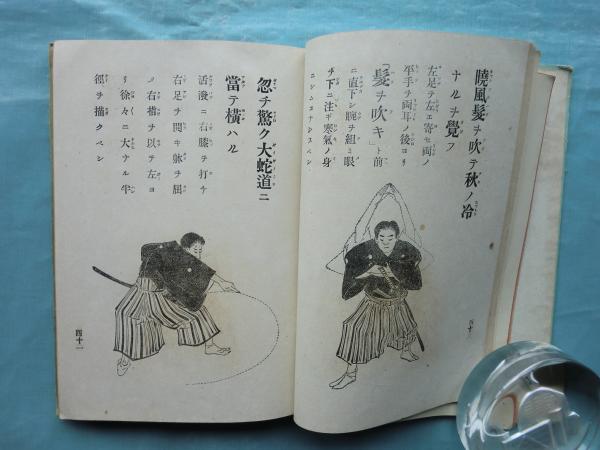 曉風髮ヲ吹テ秋ノ冷
ナルヲ覺フ
左足ヲ左エ寄セ兩ノ
平手ヲ兩耳ノ後ヨリ
「髮ヲ吹キ」ト前
ニ直下シ腕ヲ組ミ眼
ヲ下ニ注ギ寒氣ノ身
四十
忽チ驚ク大蛇道ニ
當テ横ハル
活潑ニ右膝ヲ打チ
右足ヲ開キ躰ヲ屈
ノ右指ヲ以テ左ヨ
リ徐々ニ大ナル半
徑ヲ描クベシ
四十一